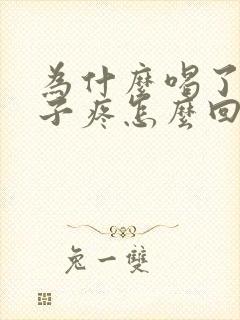 为什麼喝了
子疼怎麼回
兔一雙